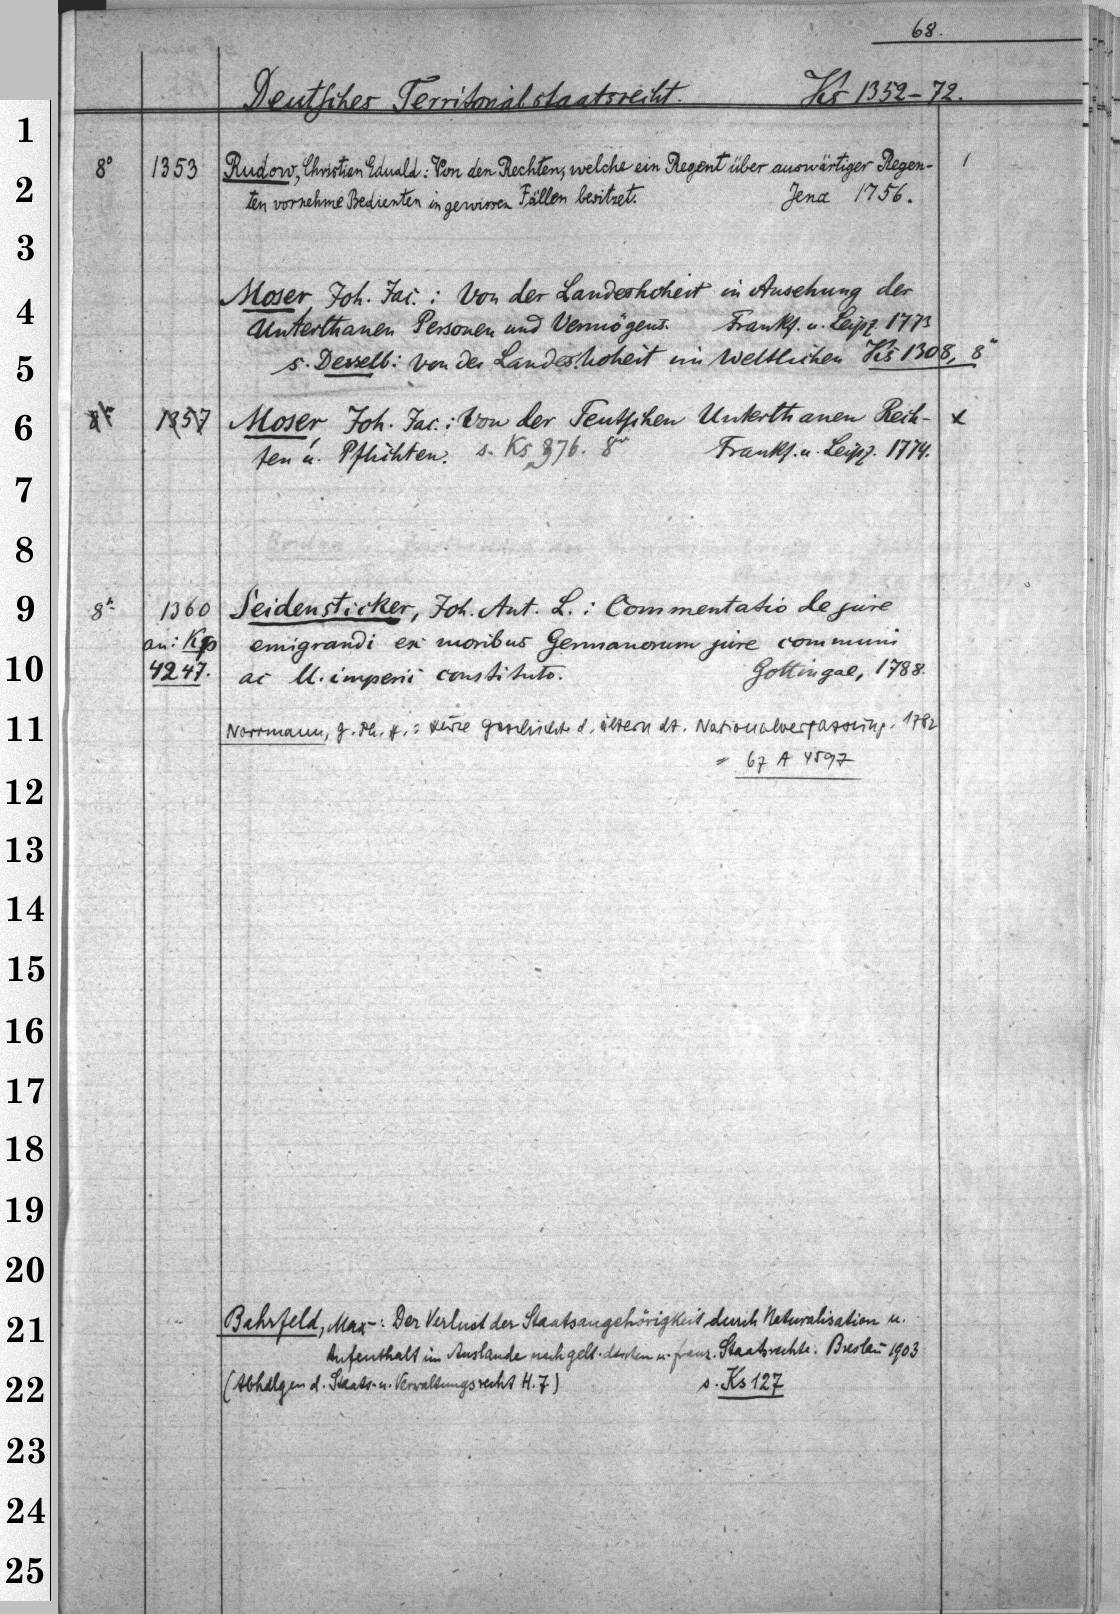 68.
Deutsches Territorialstaatsrecht. Ks 1352-72.
1
8° 1353 Rudow, Christian Eduald: Von den Rechten, welche ein Regent über auswärtiger Regen-
2 ten vornehme Bedienten in gewissen Fällen besitzet. Jena 1756.
3
Moser, Joh. Jac.: Von der Landeshoheit in Ansehung der
4 Unterthanen Personen und Vermögens. Frankf. u. Leipz. 1773
5 s. Desselb: von der Landeshoheit im Weltlichen Ks 1308, 8°
6 8° 1357 Moser, Joh. Jac.: Von der Teutschen Unterthanen Rech- x
ten u. Pflichten. s. Ks 376. 8° Frankf. u. Leipz. 1774.
7
8
9 8° 1360 Seidensticker, Joh. Ant. L.: Commentatio de jure
an: Kp emigrandi ex moribus Germanorum jure communi
10 4247. ac ll. imperii constituto. Gottingae, 1788.
11 Norrmann, G. Ph. H.: Kurze Geschichte d. ältern dt. Nationalverfassung. 1782
= 67 A 4597
12
13
14
15
16
17
18
19
20
21 Bahrfeld, Max: Der Verlust der Staatsangehörigkeit durch Naturalisation u.
Aufenthalt im Auslande nach gelt. deutschen u. franz. Staatsrechte. Breslau 1903
22 (Abhdlgen d. Staats- u. Verwaltungsrecht H. 7) s. Ks 127
23
24
25